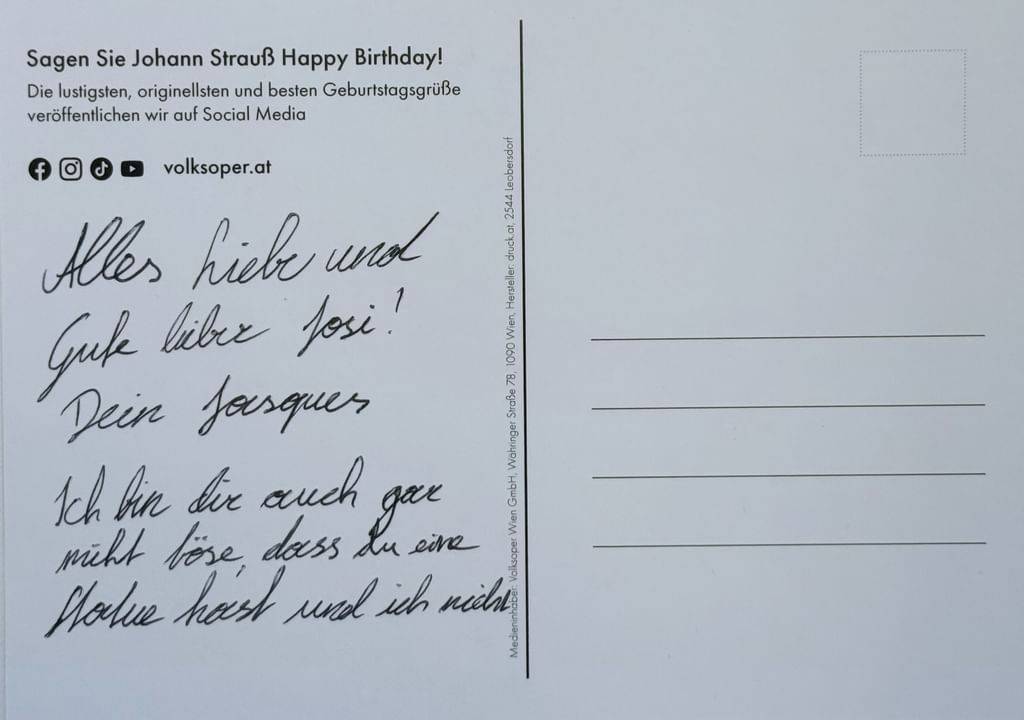 Sagen Sie Johann Strauß Happy Birthday!
Die lustigsten, originellsten und besten Geburtstagsgrüße
veröffentlichen wir auf Social Media
volksoper.at
Alles Liebe und
Gute lieber Josi!
Dein Jasques
Ich bin dir auch gar
nicht böse, dass du eine
Statue hast und ich nicht
Medieninhaber: Volksoper Wien GmbH, Währinger Straße 78, 1090 Wien, Hersteller: druck.at, 2544 Leobersdorf